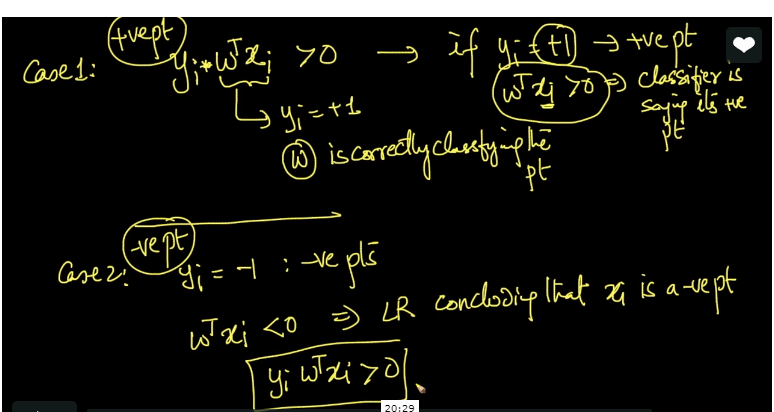 +ve pt
Case 1: yi * wᵀxi > 0 → if yi = +1 → +ve pt
wᵀxi > 0 ⇒ classifier is
saying its +ve
pt
↳ yi = +1
w is correctly classifying the
pt
-ve pt
Case 2: yi = -1 : -ve pts
wᵀxi < 0 ⇒ LR concluding that xi is a -ve pt
yi wᵀxi > 0
20:29